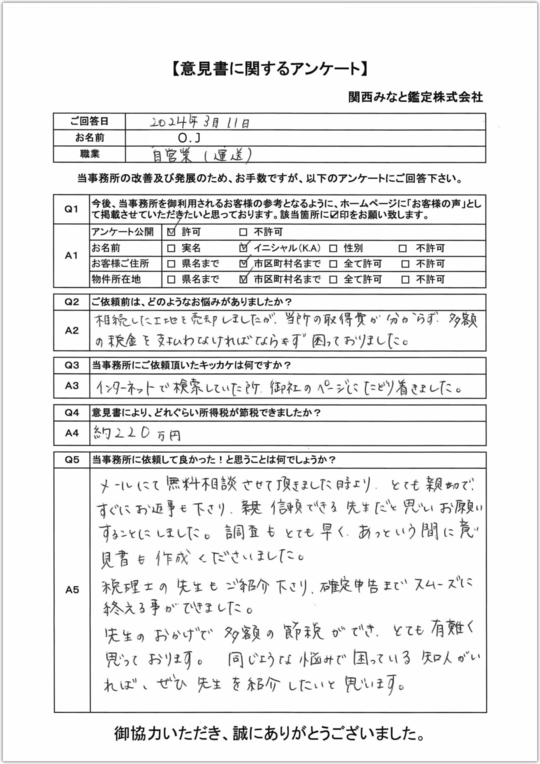 【意見書に関するアンケート】
関西みなと鑑定株式会社
ご回答日 2024年3月11日
お名前 O.J
職業 自営業(運送)
当事務所の改善及び発展のため、お手数ですが、以下のアンケートにご回答下さい。
Q1 今後、当事務所を御利用されるお客様の参考となるように、ホームページに「お客様の声」として掲載させていただきたいと思っております。該当箇所に☑印をお願い致します。
A1
アンケート公開 ☑ 許可 □ 不許可
お名前 □ 実名 ☑ イニシャル(K.A) □ 性別 □ 不許可
お客様ご住所 □ 県名まで ☑ 市区町村名まで □ 全て許可 □ 不許可
物件所在地 □ 県名まで ☑ 市区町村名まで □ 全て許可 □ 不許可
Q2 ご依頼前は、どのようなお悩みがありましたか?
A2 相続した土地を売却しましたが、当時の取得費が分からず、多額
の税金を支払わなければならず困っておりました。
Q3 当事務所にご依頼頂いたキッカケは何ですか?
A3 インターネットで検索していた所、御社のページにたどり着きました。
Q4 意見書により、どれぐらい所得税が節税できましたか?
A4 約220万円
Q5 当事務所に依頼して良かった!と思うことは何でしょうか?
A5
メールにて無料相談させて頂きました時より、とても親切で、
すぐにお返事も下さり、親 信頼できる先生だと思いお願い
することにしました。調査もとても早く、あっという間に意
見書も作成くださいました。
税理士の先生もご紹介下さり、確定申告までスムーズに
終える事ができました。
先生のおかげで多額の節税ができ、とても有難く
思っております。同じような悩みで困っている知人がい
れば、ぜひ先生を紹介したいと思います。
御協力いただき、誠にありがとうございました。